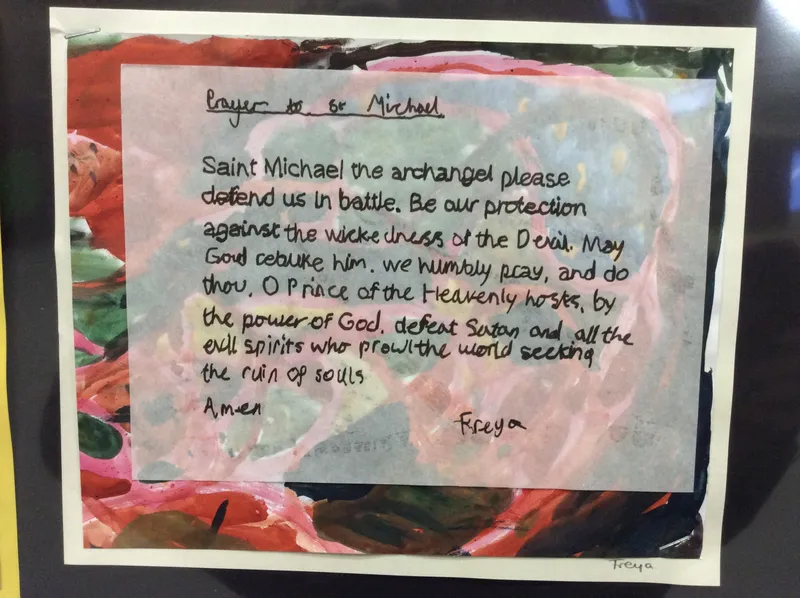 Prayer to St Michael
Saint Michael the archangel please
defend us in battle. Be our protection
against the wickedness of the Devil. May
God rebuke him. we humbly pray, and do
thou. O Prince of the Heavenly hosts, by
the power of God. defeat Satan and all the
evil spirits who prowl the world seeking
the ruin of souls
Amen
Freya
Freya